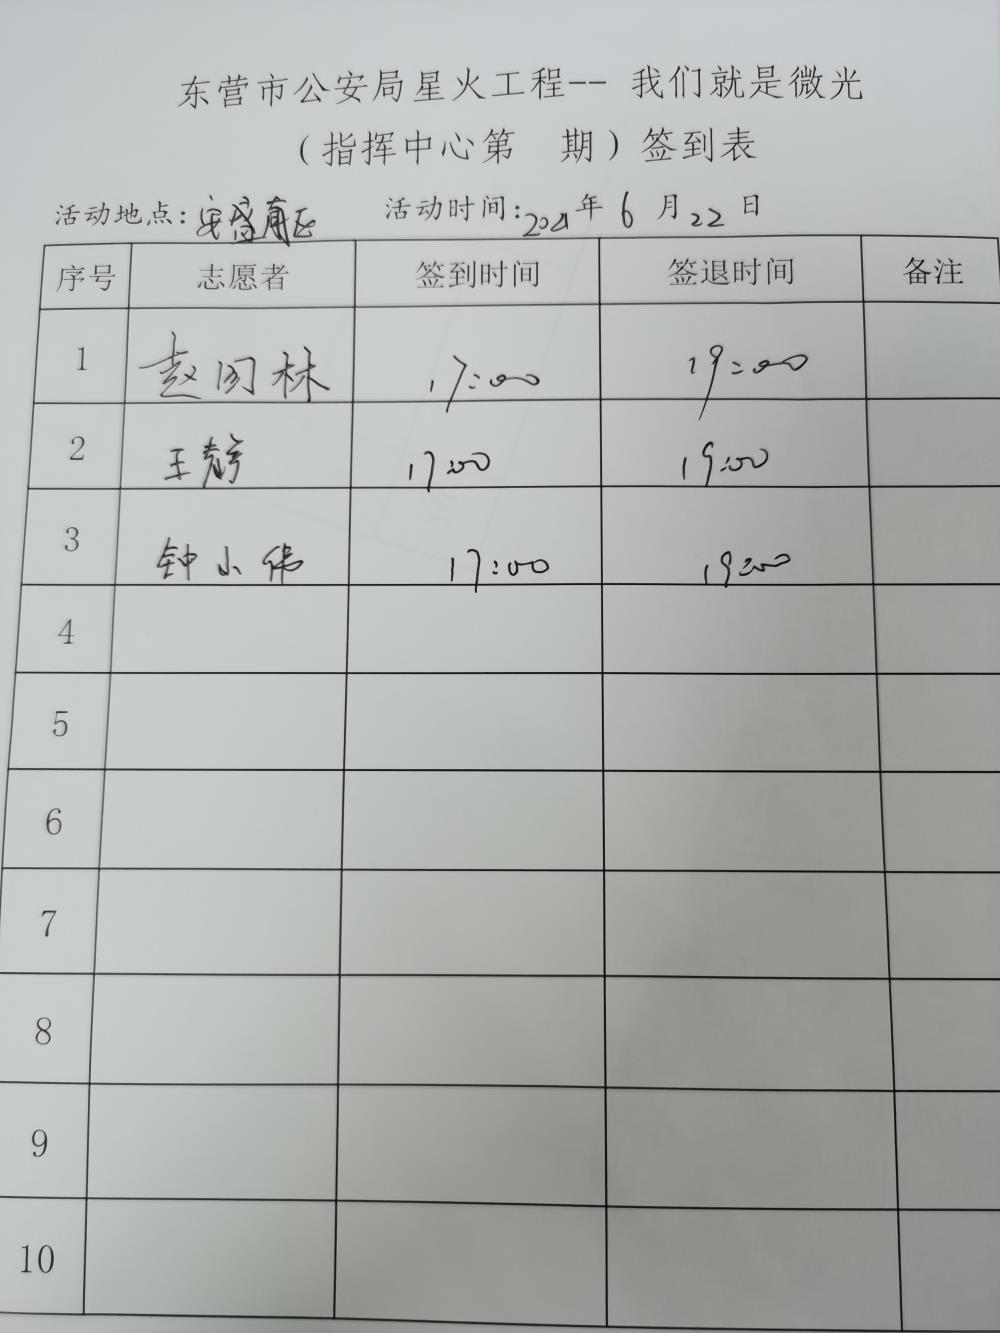 东营市公安局星火工程-- 我们就是微光
（指挥中心第 期）签到表
活动地点: 活动时间: 2021年 6 月 22 日
序号 志愿者 签到时间 签退时间 备注
1 赵国林 17:00 19:00
2 王静 17:00 19:00
3 钟小伟 17:00 19:00
4
5
6
7
8
9
10